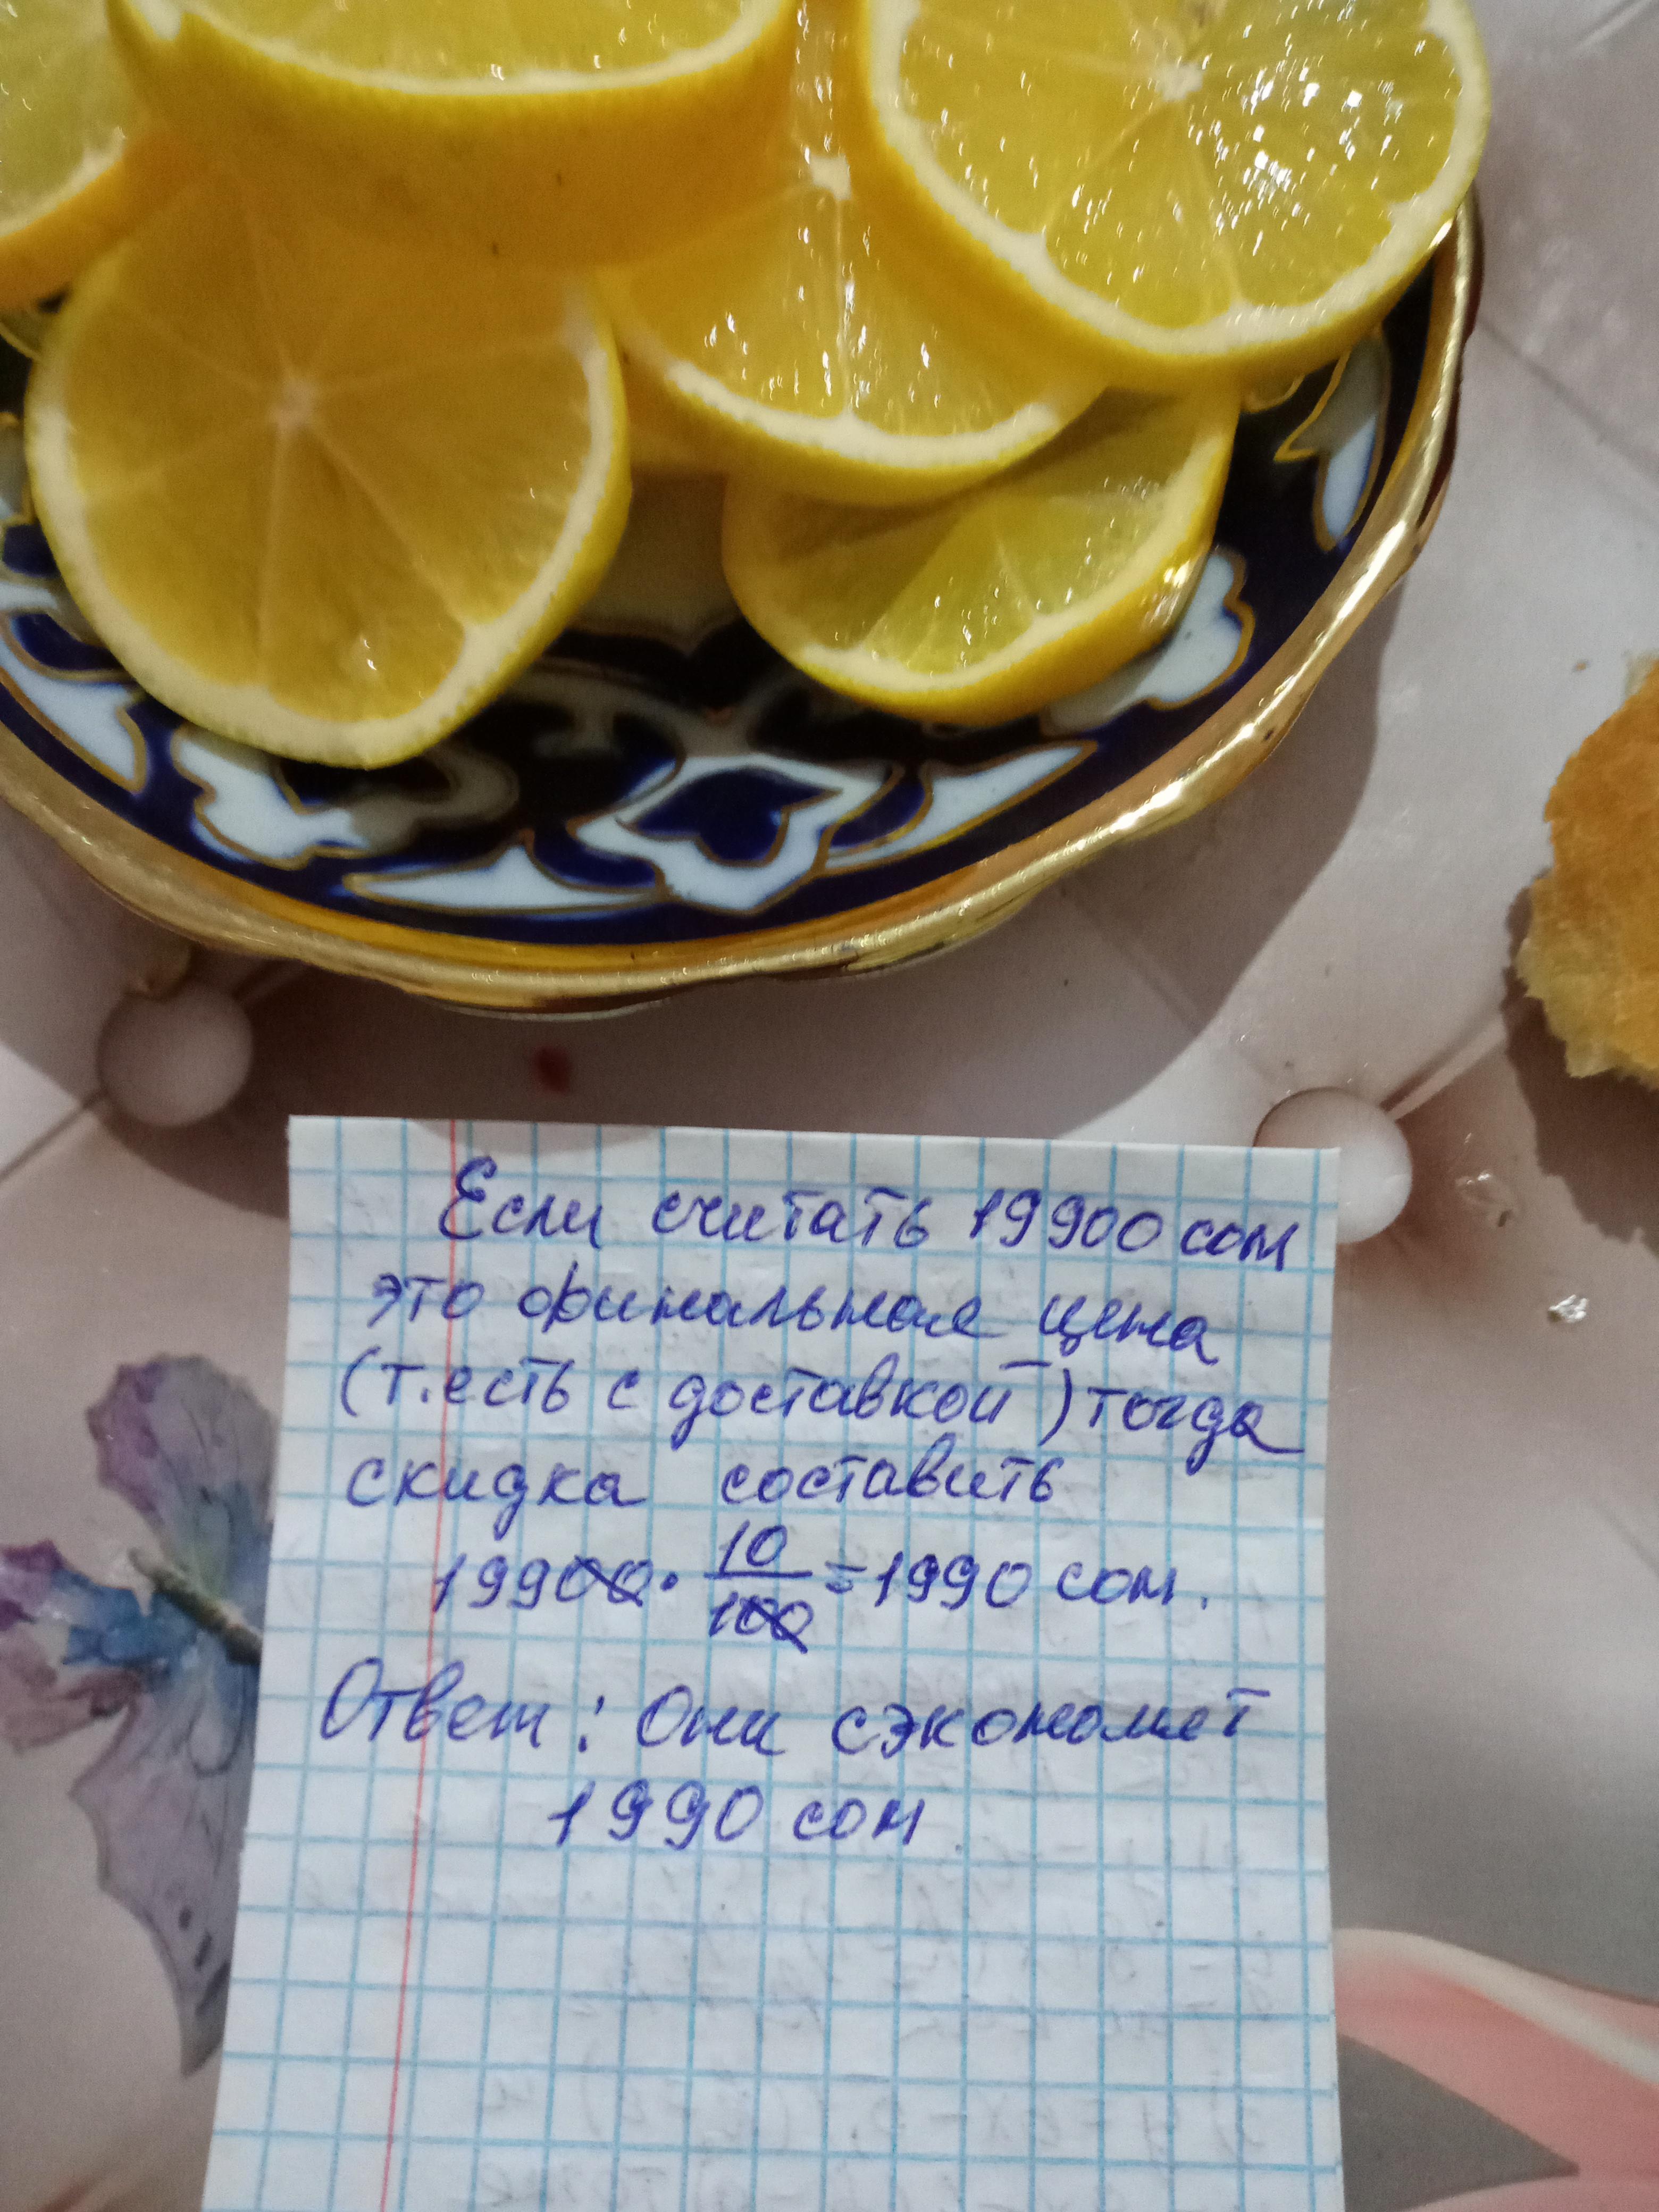 Если считать 19900 сом
это финальная цена
(т.есть с доставкой) тогда
скидка составить
19900 · 10/100 = 1990 сом.
Ответ: Они сэкономет
1990 сом